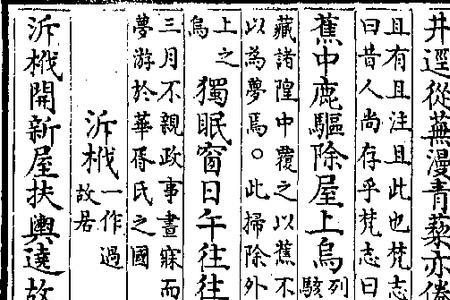 井逕從蕪漫青藜亦倦
且有且注且此也梵志
曰昔人尚存乎梵志曰
蕉中鹿驅除屋上烏
列
駭
藏諸隍中覆之以蕉不
以為夢焉。此掃除外
上之
烏
獨眠窗日午往往
三月不親政事晝寐而
夢游於華胥氏之國
泝栰
一作過
故居
泝栰開新屋扶輿遶故